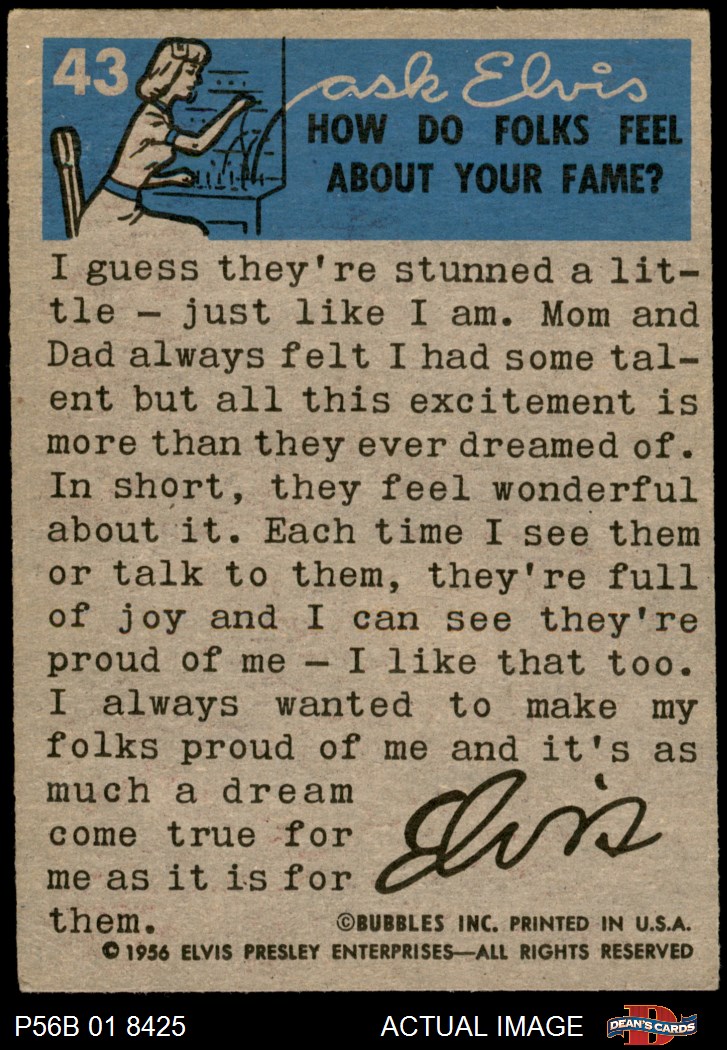 43
ask Elvis
HOW DO FOLKS FEEL
ABOUT YOUR FAME?
I guess they're stunned a lit-
tle — just like I am. Mom and
Dad always felt I had some tal-
ent but all this excitement is
more than they ever dreamed of.
In short, they feel wonderful
about it. Each time I see them
or talk to them, they're full
of joy and I can see they're
proud of me — I like that too.
I always wanted to make my
folks proud of me and it's as
much a dream
come true for
me as it is for
them.
Elvis
©BUBBLES INC. PRINTED IN U.S.A.
© 1956 ELVIS PRESLEY ENTERPRISES—ALL RIGHTS RESERVED
P56B 01 8425
ACTUAL IMAGE
D
DEAN'S CARDS